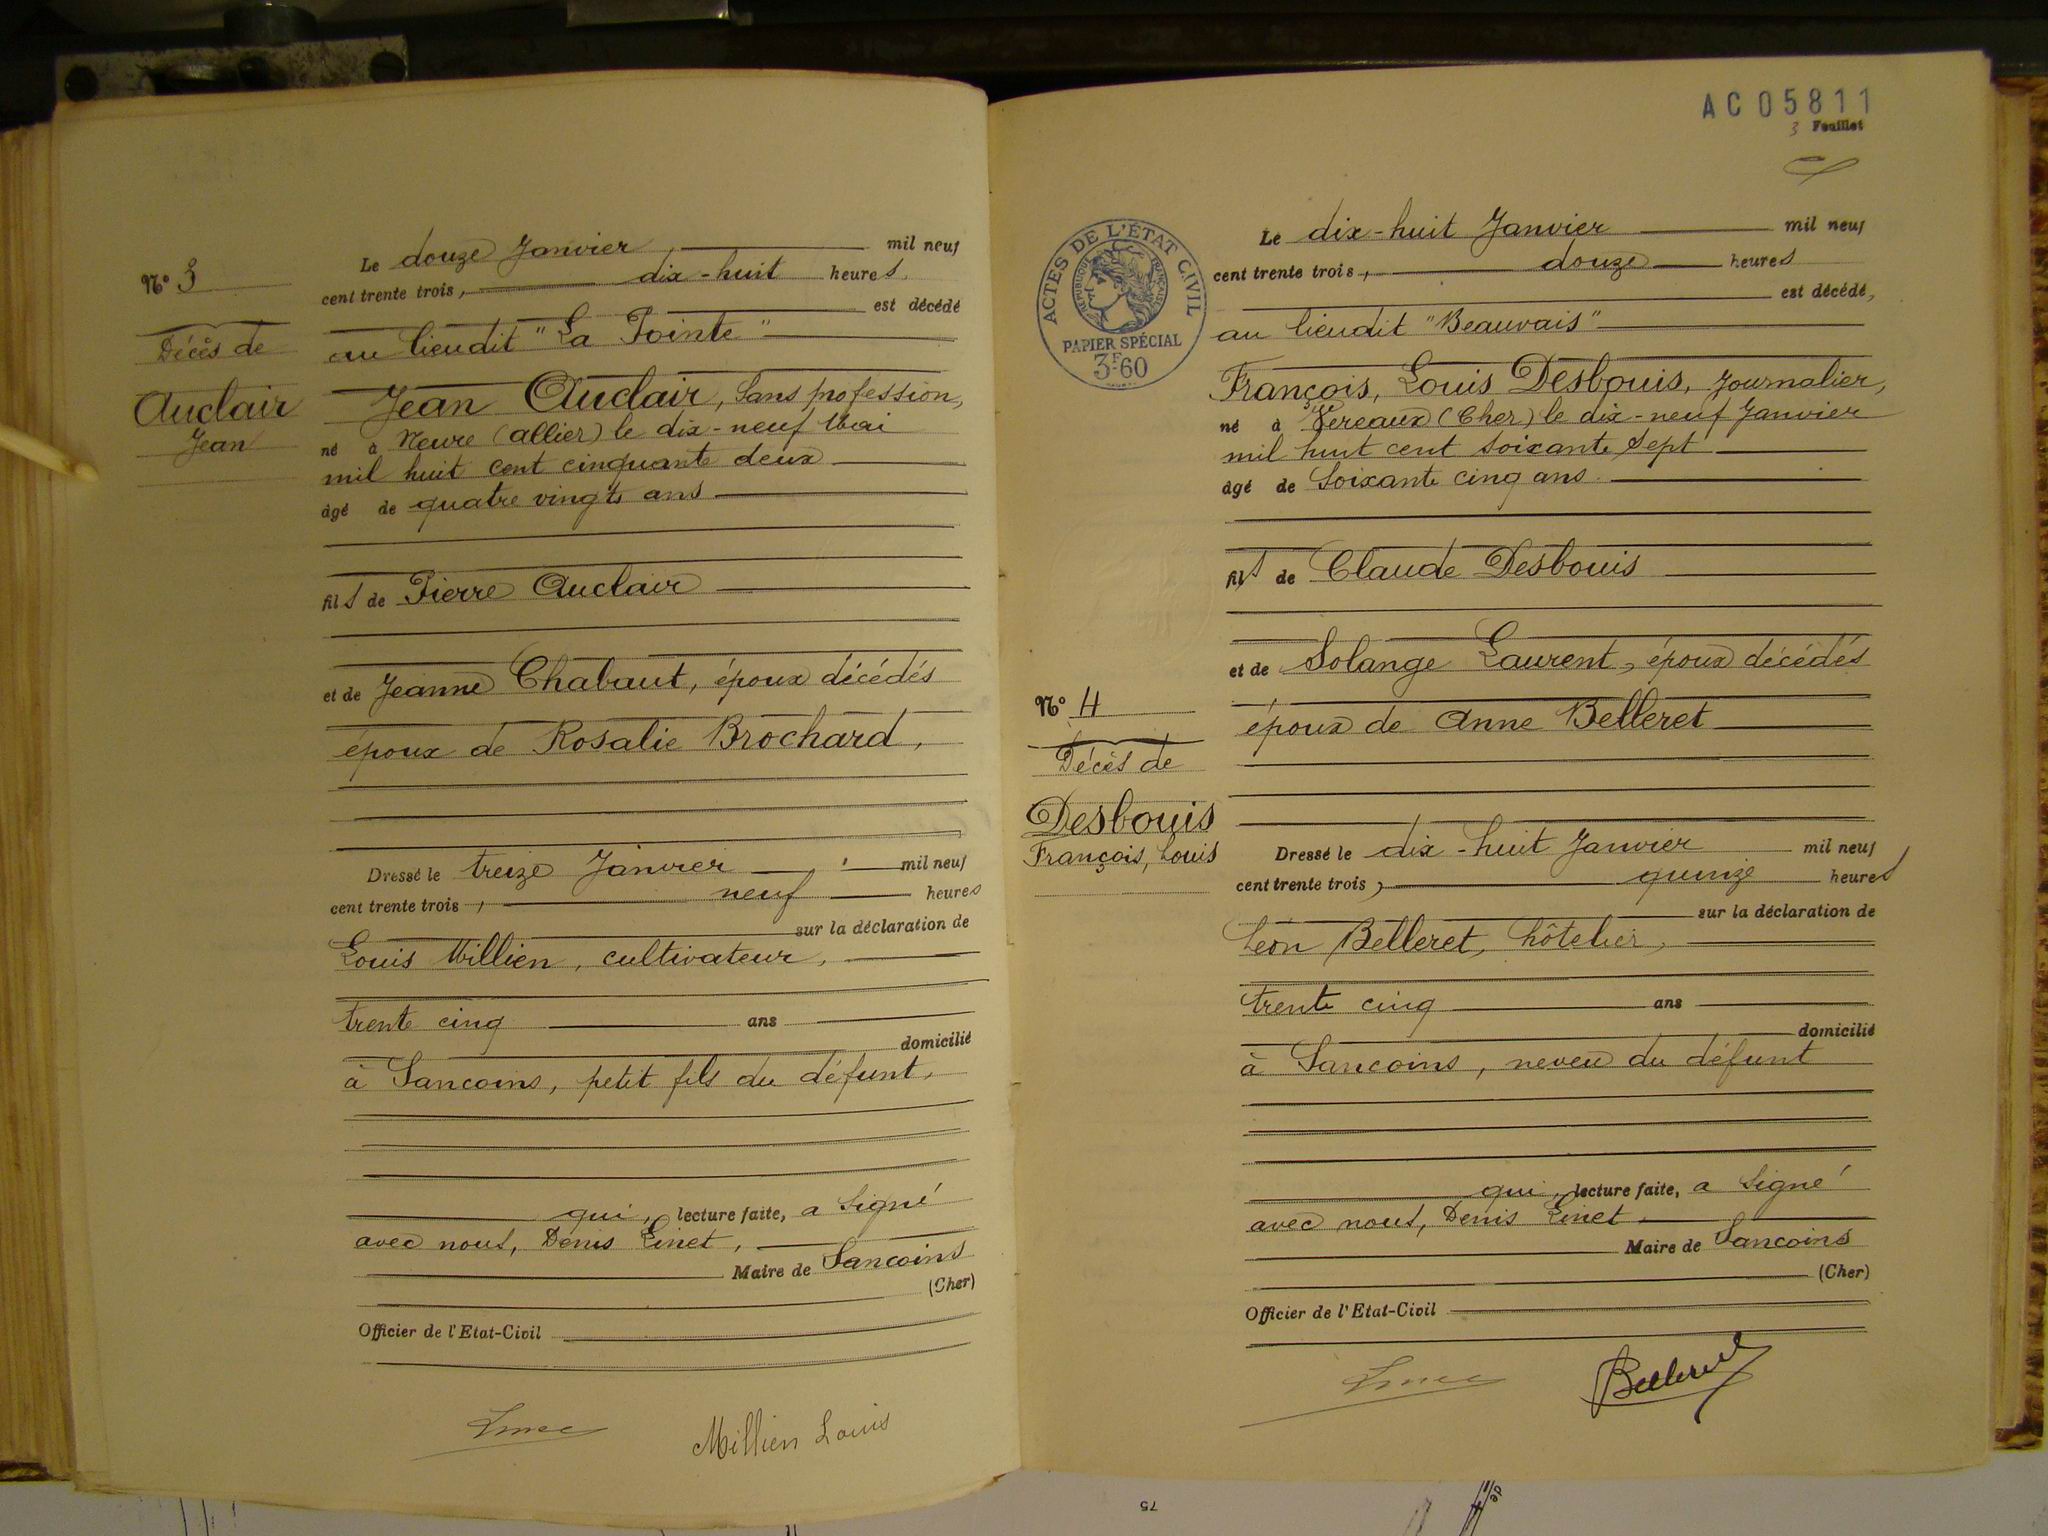 Nº 3
Décès de
Auclair
Jean
Le douze Janvier, mil neuf
cent trente trois, dix-huit heures
est décédé
au lieudit "La Pointe"
Jean Auclair, Sans profession,
né à Neure (Allier) le dix-neuf Mai
mil huit cent cinquante deux
âgé de quatre vingts ans
fils de Pierre Auclair
et de Jeanne Chabaut, époux décédés
époux de Rosalie Brochard,
Dressé le treize Janvier mil neuf
cent trente trois, neuf heures
sur la déclaration de
Louis Millien, cultivateur,
trente cinq ans
domicilié
à Sancoins, petit fils du défunt,
qui, lecture faite, a signé
avec nous, Denis Linet,
Maire de Sancoins
(Cher)
Officier de l'Etat-Civil
Millien Louis
AC05811
3 Feuillet
ACTES DE L'ÉTAT CIVIL
RÉPUBLIQUE FRANÇAISE
PAPIER SPÉCIAL
3F60
Nº 4
Décès de
Desbouis
François, Louis
Le dix-huit Janvier mil neuf
cent trente trois, douze heures
est décédé,
au lieudit "Beauvais"
François, Louis Desbouis, Journalier,
né à Vereaux (Cher) le dix-neuf Janvier
mil huit cent soixante sept
âgé de Soixante cinq ans.
fils de Claude Desbouis
et de Solange Laurent, époux décédés
époux de Anne Belleret
Dressé le dix-huit Janvier mil neuf
cent trente trois, quinze heures
sur la déclaration de
Léon Belleret, hôtelier,
trente cinq ans
domicilié
à Sancoins, neveu du défunt
qui, lecture faite, a signé
avec nous, Denis Linet,
Maire de Sancoins
(Cher)
Officier de l'Etat-Civil
Belleret
75
de